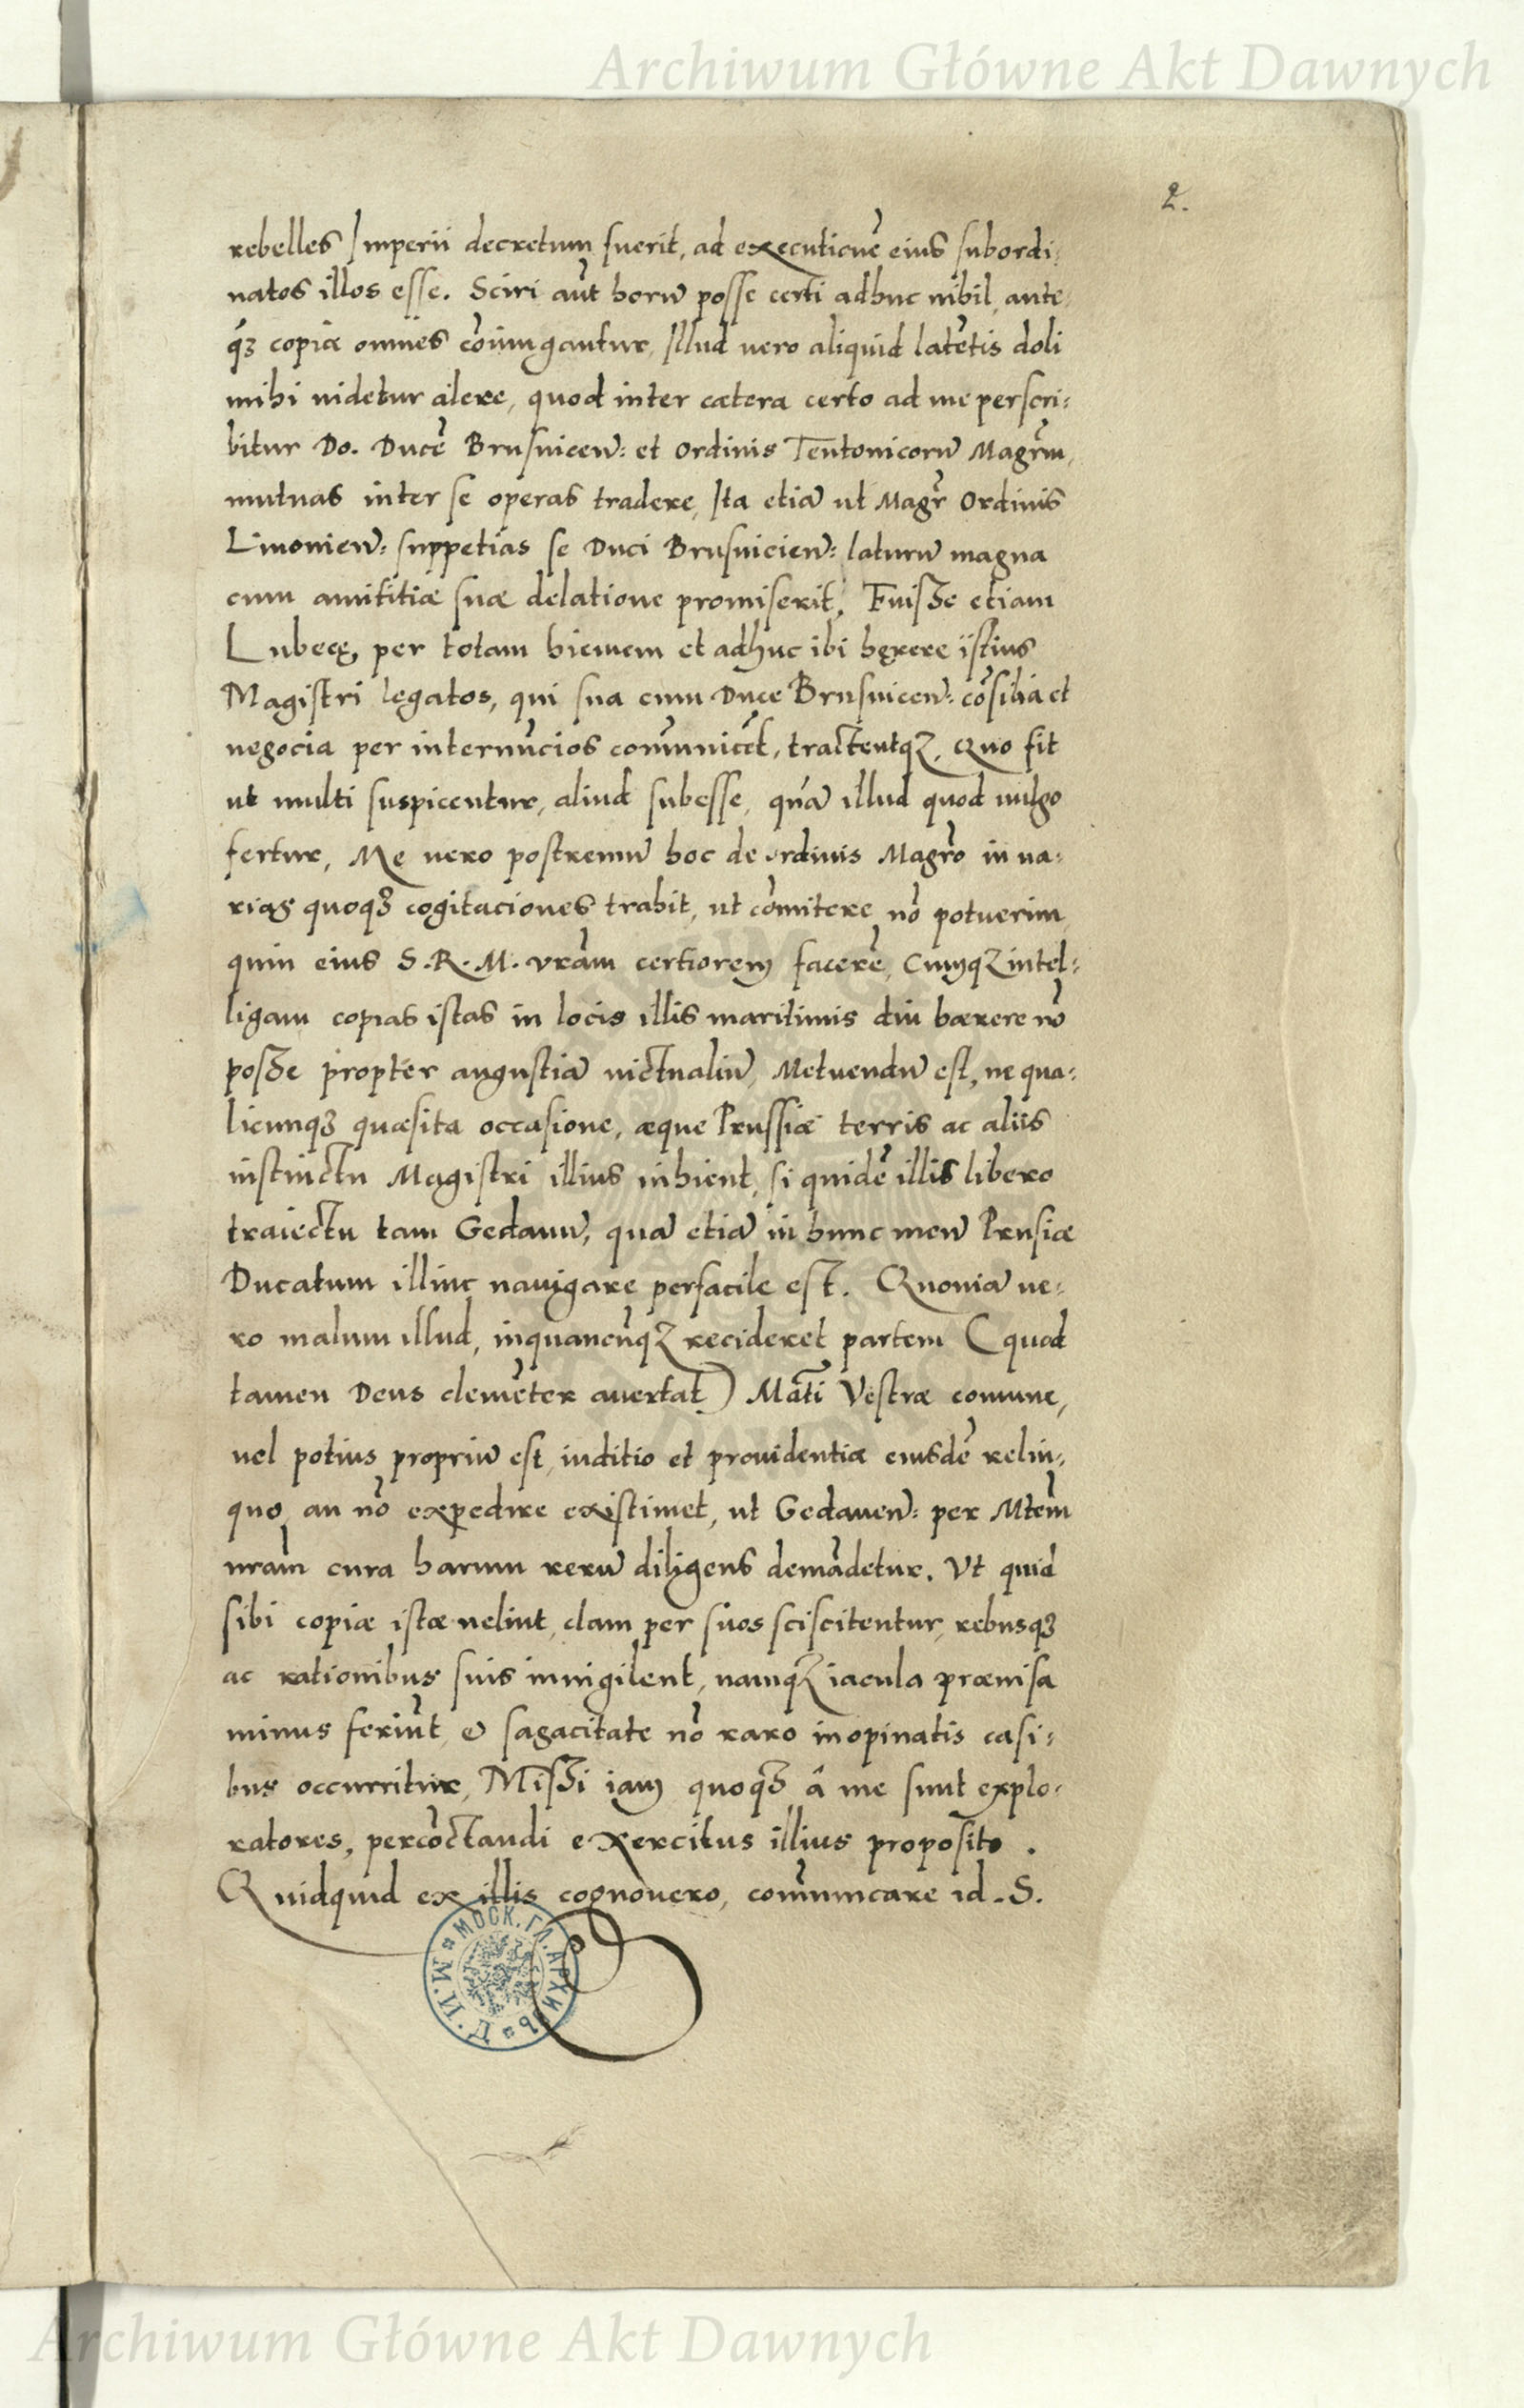 Archiwum Główne Akt Dawnych
2.
rebelles Imperii decretum fuerit, ad executionē eius subordi:
natos illos esse. Sciri aūt horū posse certi adhuc nihil, ante:
q̄ꝫ copiæ omnes cōiungantur, Illud vero aliquid latētis doli
mihi uidetur alere, quod inter cætera certo ad me perscri:
bitur Do. Ducē Brusuicen̄: et Ordinis Teutonicorū Magrm̄,
mutuas inter se operas tradere, Ita etiā ut Magr̄ Ordinis
Liuonien̄: suppetias se Duci Brusuicien̄: laturū magna
cum amititiæ suæ delatione promiserit, Fuisse etiam
Lubecę, per totam hiemem et adhuc ibi hęrere istius
Magistri legatos, qui sua cum Duce Brusuicen̄: cōsilia et
negocia per internūcios com̄unicēt, tractentqꝫ. Quo fit
ut multi suspicentur, aliud subesse, qn̄ā illud quod uulgo
fertur, Me uero postremū hoc de ordinis Magrō in ua:
rias quoqꝫ cogitaciones trahit, ut cōmitere nō potuerim
quin eius S. R. M. vrām certiorem facerē, Cumqꝫ intel:
ligam copias istas in locis illis maritimis diu hærere nō
posse propter angustiā uictualiū, Metuendū est, ne qua:
licunqꝫ quæsita occasione, æque Prussiæ terris ac aliis
instinctu Magistri illius inhient, si quidē illis libero
traiectu tam Gedanū, quā etiā in hunc meū Prusiæ
Ducatum illinc nauigare perfacile est. Quoniā ue:
ro malum illud, inquancūqꝫ recideret partem (quod
tamen Deus clemēter auertat) Māti Vestræ comune,
uel potius propriū est, iuditio et prouidentiæ eiusdē relin:
quo, an nō expedire existimet, ut Gedanen̄: per Mtem̄
uram̄ cura harum rerū diligens demādetur. Ut quid
sibi copiæ istæ uelint, clam per suos sciscitentur, rebusqꝫ
ac rationibus suis inuigilent, namqꝫ iacula præuisa
minus feriūt, & sagacitate nō raro inopinatis casi:
bus occurritur, Missi iam quoqꝫ â me sunt explo:
ratores, percōctandi exercitus illius proposito.
Quidquid ex illis cognouero, com̄unicare id. S.
МОСК. ГЛ. АРХИВЪ М. И. Д.
Archiwum Główne Akt Dawnych